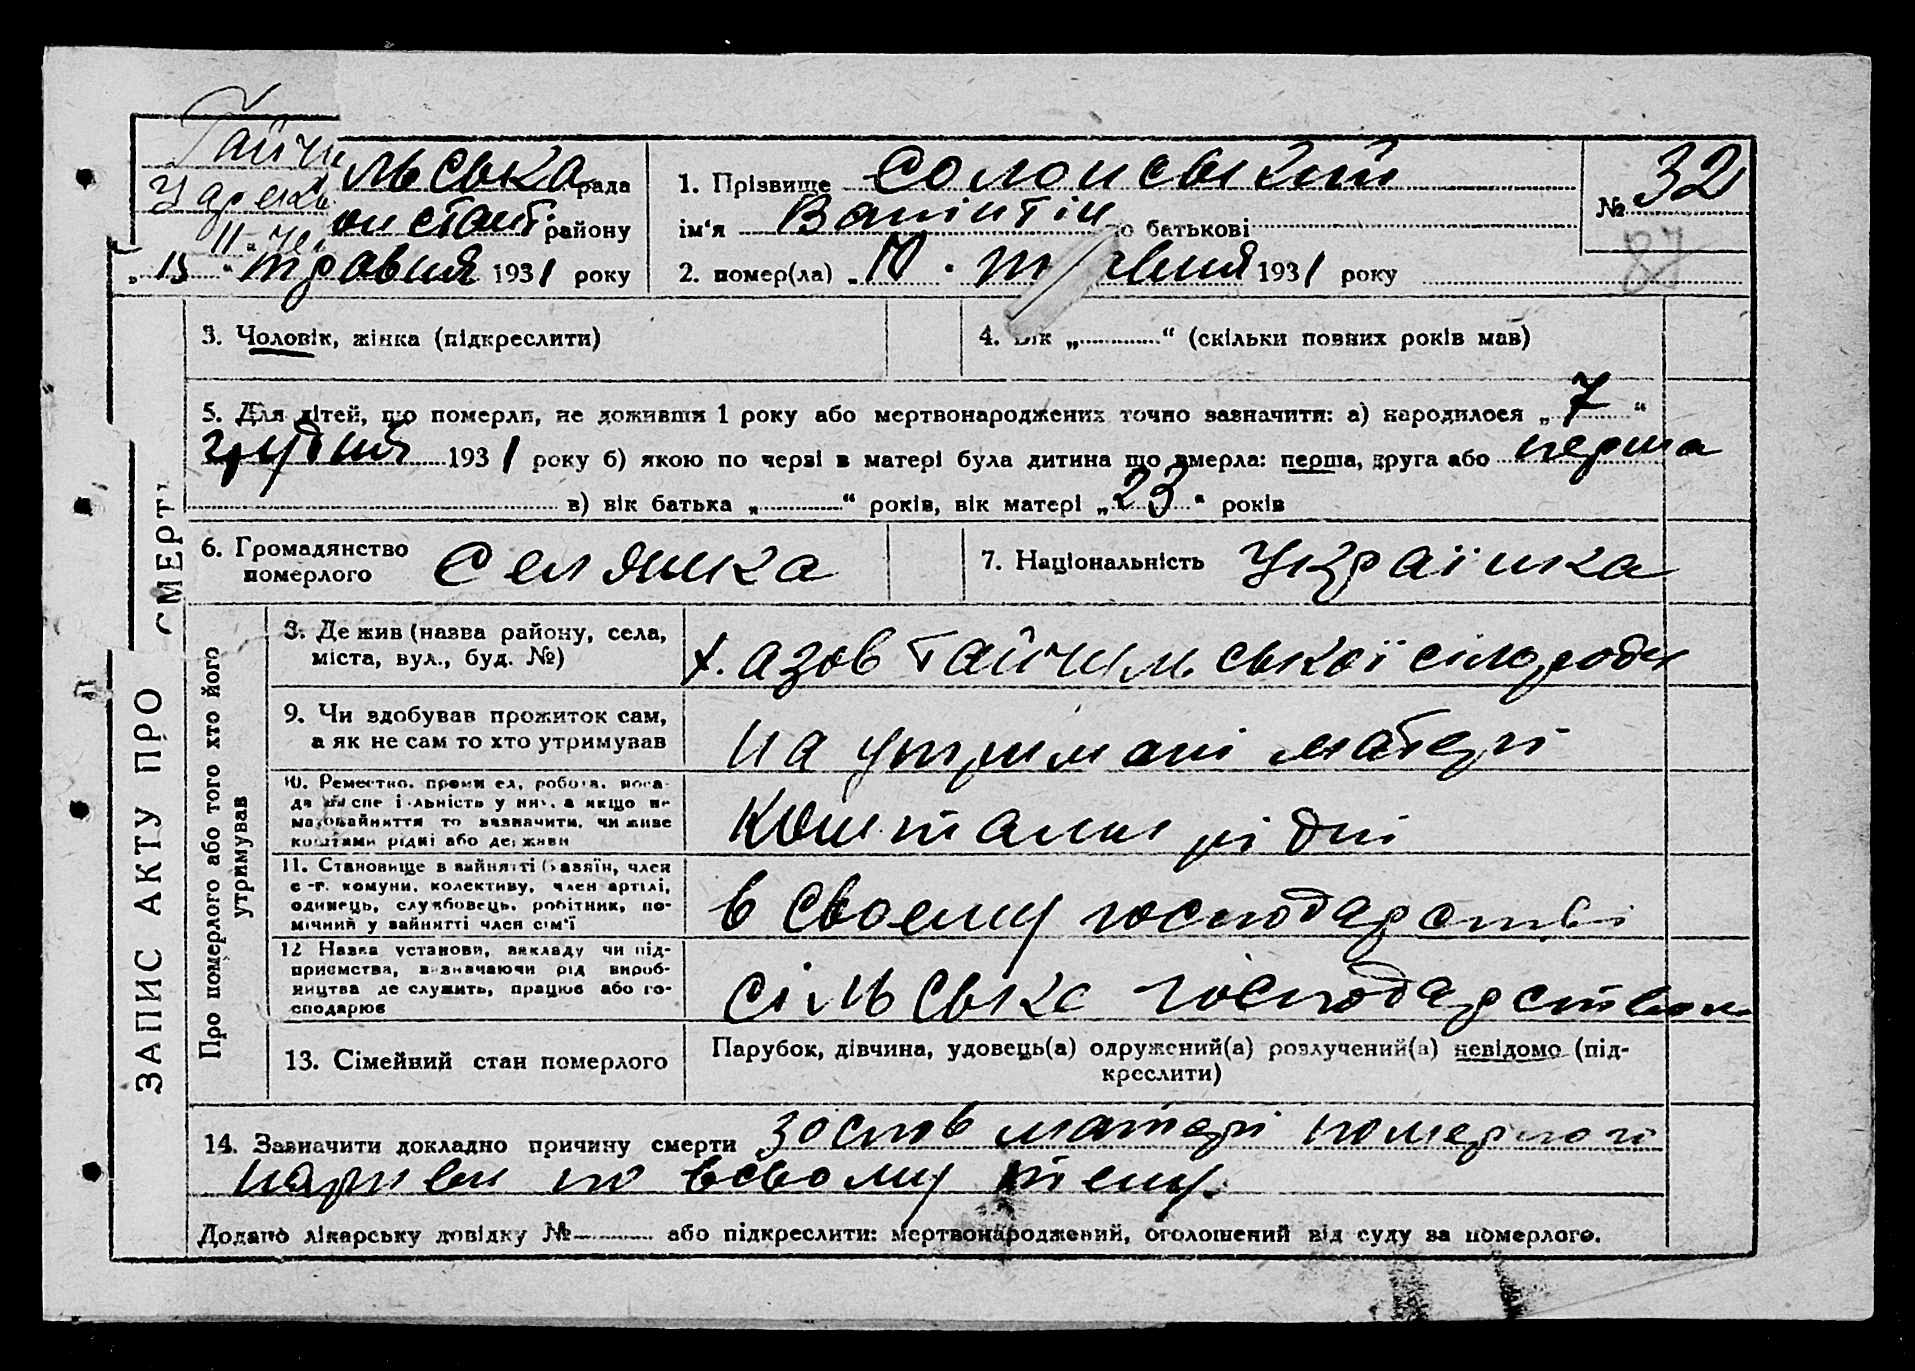 Гайчульська рада
1. Прізвище Солонський
№ 32
району
ім'я Валінтін по батькові
87
„ 15 " травня 1931 року
2. помер(ла) „ 10 " травня 1931 року
3. Чоловік, жінка (підкреслити)
4. Вік „ " (скільки повних років мав)
5. Для дітей, що померли, не доживши 1 року або мертвонароджених точно зазначити: а) народилося „ 7 "
грудня 1931 року б) якою по черзі в матері була дитина що вмерла: перша, друга або перша
в) вік батька „ " років, вік матері „ 23 " років
6. Громадянство
померлого
Селянка
7. Національність Українка
ЗАПИС АКТУ ПРО СМЕРТЬ
Про померлого або того хто його
утримував
8. Де жив (назва району, села,
міста, вул., буд. №)
х. азов Гайчульської сільради
9. Чи здобував прожиток сам,
а як не сам то хто утримував
на утримані матері
10. Ремество, промисел, робота, поса-
да чи спеціальність у них, а якщо не
мав зайняття то зазначити, чи живе
коштами рідні або держави
коштами рідні
11. Становище в зайнятті (хазяїн, член
с-г. комуни, колективу, член артілі,
одинець, службовець, робітник, по-
мічний у зайнятті член сім'ї
в своему господарстві
12 Назва установи, закладу чи під-
приємства, зазначаючи рід вироб-
ництва де служить, працює або го-
сподарює
сільське господарство
13. Сімейний стан померлого
Парубок, дівчина, удовець(а) одружений(а) розлучений(а) невідомо (під-
креслити)
14. Зазначити докладно причину смерти зослов матері померлого
нариви по всьому телу.
Додано лікарську довідку № або підкреслити: мертвонароджений, оголошений від суду за померлого.